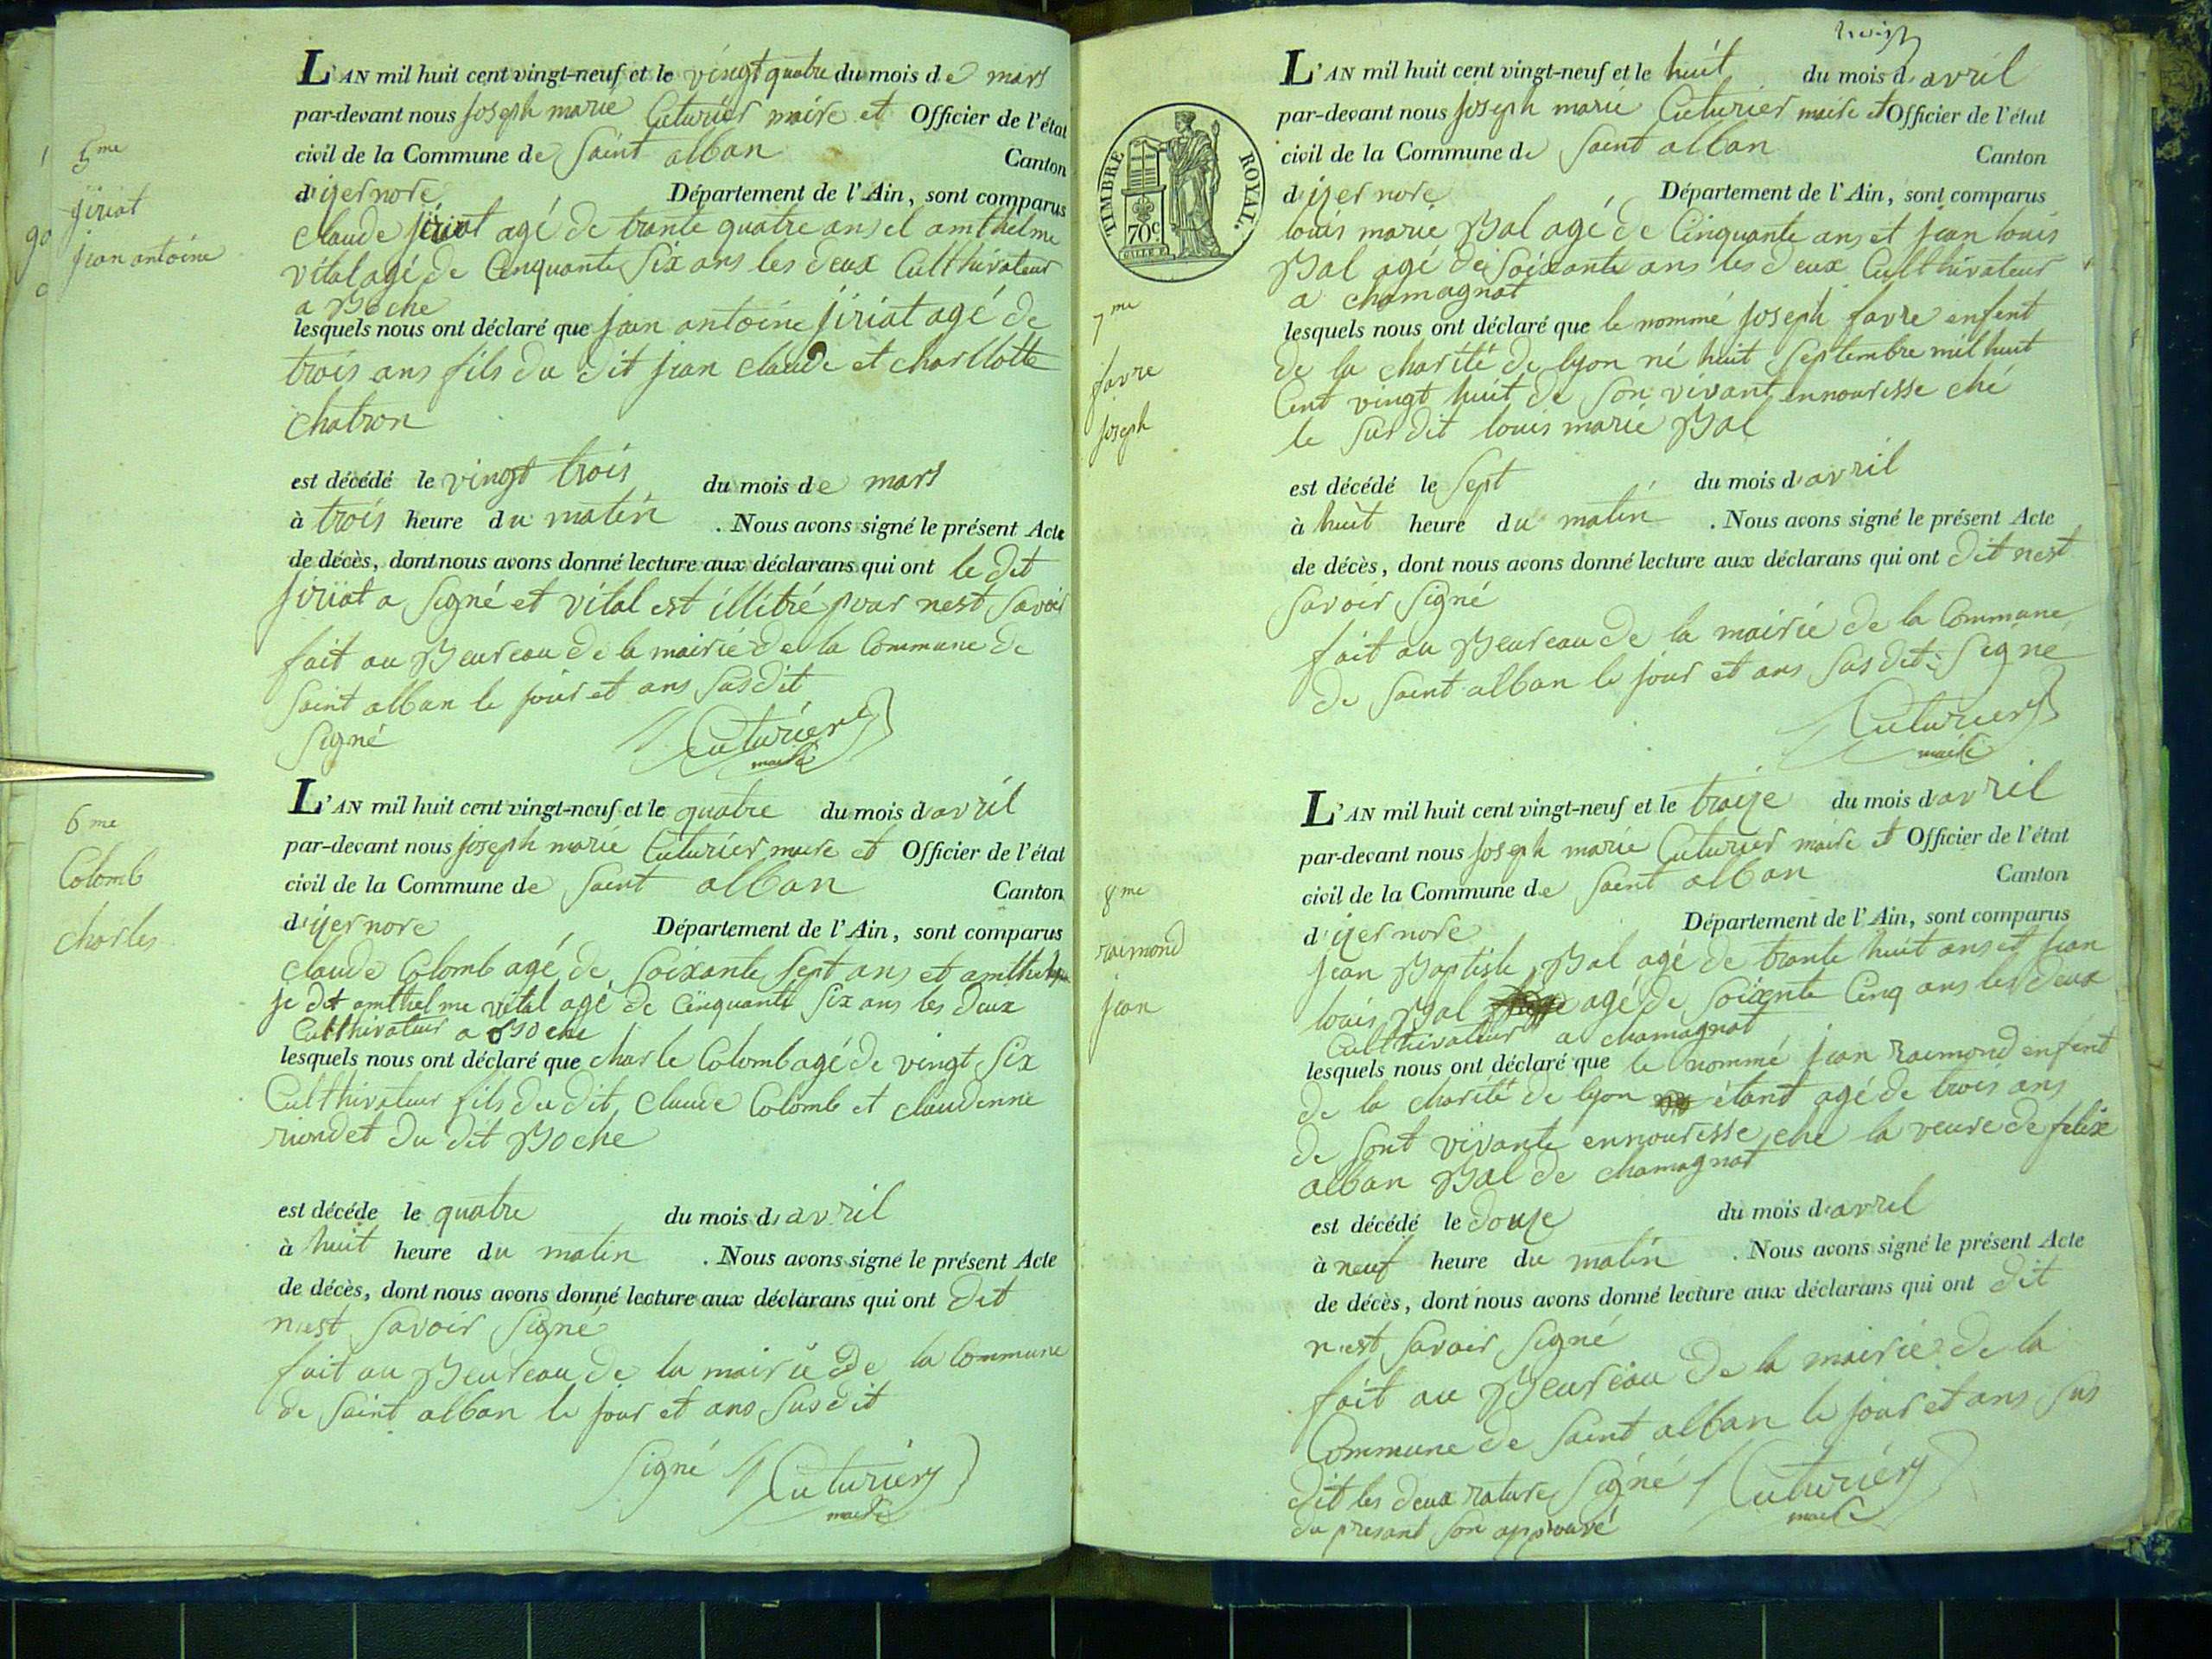 5me
jiriat
jean antoine
L'AN mil huit cent vingt-neuf et le vingt quatre du mois de mars
par-devant nous joseph marie Cuturier maire et Officier de l'état
civil de la Commune de Saint alban Canton
d'izernore Département de l'Ain, sont comparus
claude jiriat agé de trante quatre ans et amthelme
vital agé de Cinquante Six ans les deux Culthivateur
a Boche
lesquels nous ont déclaré que jean antoine jiriat agé de
trois ans fils du dit jean claude et charllotte
chatron
est décédé le vingt trois du mois de mars
à trois heure du matin . Nous avons signé le présent Acte
de décès, dont nous avons donné lecture aux déclarans qui ont le dit
jiriat a Signé et vital est illitré pour nest Savoir
fait au Beureau de la mairie de la Commune de
Saint alban le jour et ans Susdit
Signé Cuturier
maire
6me
Colomb
charles
L'AN mil huit cent vingt-neuf et le quatre du mois d'avril
par-devant nous joseph marie Cuturier maire et Officier de l'état
civil de la Commune de Saint alban Canton
d'izernore Département de l'Ain, sont comparus
claude Colomb agé de Soixante Sept ans et
je dit amthelme vital agé de Cinquante Six ans les deux
Culthivateur a Boche
lesquels nous ont déclaré que charle Colomb agé de vingt Six
Culthivateur fils du dit claude Colomb et claudenne
riondet du dit Boche
est décéde le quatre du mois d'avril
à huit heure du matin . Nous avons signé le présent Acte
de décès, dont nous avons donné lecture aux déclarans qui ont dit
nest Savoir Signé
fait au Beureau de la mairie de la Commune
de Saint alban le jour et ans Susdit
Signé Cuturier
maire
TIMBRE ROYAL.
70c
7me
favre
joseph
L'AN mil huit cent vingt-neuf et le huit du mois d'avril
par-devant nous joseph marie Cuturier maire et Officier de l'état
civil de la Commune de Saint alban Canton
d'izernore Département de l'Ain, sont comparus
louis marie Bal agé de Cinquante ans et jean louis
Bal agé de Soixante ans les deux Culthivateur
a chamagnat
lesquels nous ont déclaré que le nommé joseph favre enfent
de la charité de lyon né huit Septembre mil huit
Cent vingt huit de Son vivant ennourisse ché
le Sus dit louis marie Bal
est décédé le Sept du mois d'avril
à huit heure du matin . Nous avons signé le présent Acte
de décès, dont nous avons donné lecture aux déclarans qui ont dit nest
Savoir Signé
fait au Beureau de la mairie de la Commune
de Saint alban le jour et ans Susdit Signé
Cuturier
maire
8me
raimond
jean
L'AN mil huit cent vingt-neuf et le traize du mois d'avril
par-devant nous joseph marie Cuturier maire et Officier de l'état
civil de la Commune de Saint alban Canton
d'izernore Département de l'Ain, sont comparus
jean Baptiste Bal agé de trante huit ans et jean
louis Bal agé de Soixente Cinq ans les deux
Culthivateur a chamagnat
lesquels nous ont déclaré que le nommé jean raimond enfent
de la charité de lyon étant agé de trois ans
de Sont vivante ennourisse ché la veuve de felix
alban Bal de chamagnat
est décédé le douze du mois d'avril
à neuf heure du matin . Nous avons signé le présent Acte
de décès, dont nous avons donné lecture aux déclarans qui ont dit
nest Savoir Signé
fait au Beureau de la mairie de la
Commune de Saint alban le jour et ans Sus
dit les deux rature Signé Cuturier
du presant Son approuvé maire